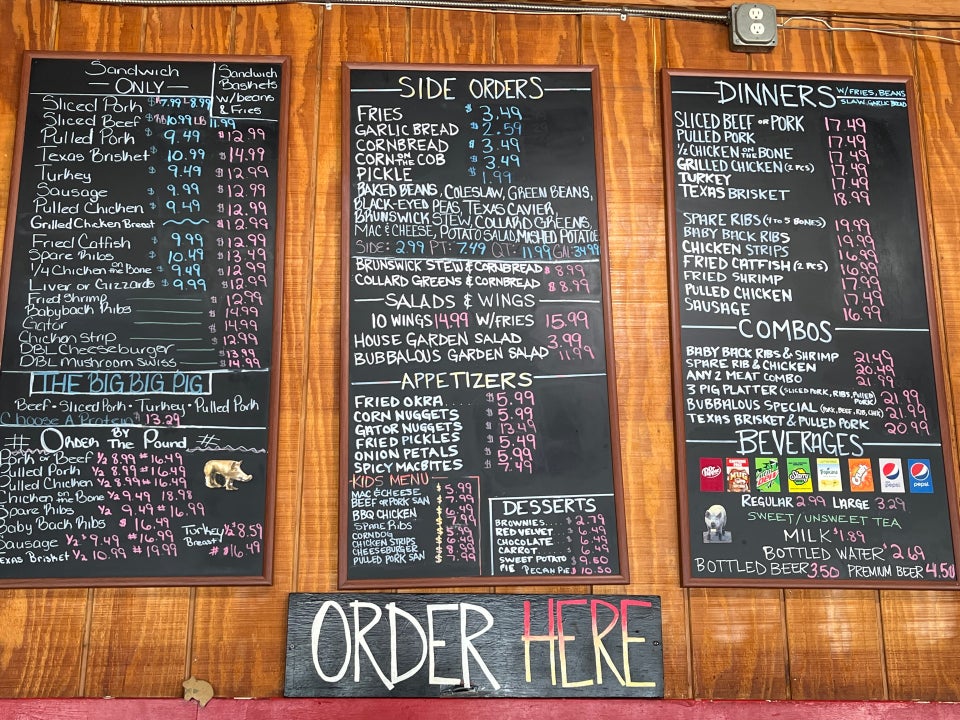 Sandwich
ONLY
Sandwich
Baskets
w/beans
& Fries
Sliced Pork $ 7.99 LB 8.99
Sliced Beef $ 10.99 LB 11.99
Pulled Pork $ 9.49 $12.99
Texas Brisket $ 10.99 $14.99
Turkey $ 9.49 $12.99
Sausage $ 9.99 $12.99
Pulled Chicken $ 9.49 $12.99
Grilled Chicken Breast $12.99
Fried Catfish $ 9.99 $12.99
Spare Ribs $ 10.49 $13.49
1/4 Chicken on the Bone $ 9.49 $12.99
Liver or Gizzards $ 9.99 $12.99
Fried Shrimp $12.99
Babyback Ribs $14.99
Gator $14.99
Chicken Strip $12.99
DBL Cheeseburger $13.99
DBL Mushroom Swiss $14.99
THE BIG BIG PIG
Beef · Sliced Pork · Turkey · Pulled Pork
Choose A Protein $ 13.29
# Order BY The Pound #
Pork or Beef 1/2 8.99 # 16.49
Pulled Pork 1/2 8.99 # 16.49
Pulled Chicken 1/2 8.99 # 16.49
Chicken on the Bone 1/2 9.49 18.98
Spare Ribs 1/2 9.49 # 16.99
Baby Back Ribs $ 16.49
Sausage 1/2 $ 9.49 # 16.99
Texas Brisket 1/2 10.99 # 19.99
Turkey Breast 1/2 $ 8.59
# $16.49
SIDE ORDERS
FRIES $ 3.49
GARLIC BREAD $ 2.59
CORNBREAD $ 3.49
CORN ON THE COB $ 3.49
PICKLE $ 1.99
BAKED BEANS, COLESLAW, GREEN BEANS,
BLACK-EYED PEAS, TEXAS CAVIER,
BRUNSWICK STEW, COLLARD GREENS,
MAC & CHEESE, POTATO SALAD, MASHED POTATOE
SIDE: 2.99 PT: 7.49 QT: 11.99 GAL: 34.99
BRUNSWICK STEW & CORNBREAD $ 8.99
COLLARD GREENS & CORNBREAD $ 8.99
SALADS & WINGS
10 WINGS 14.99 W/FRIES 15.99
HOUSE GARDEN SALAD 3.99
BUBBALOUS GARDEN SALAD 11.99
APPETIZERS
FRIED OKRA.... $5.99
CORN NUGGETS $5.99
GATOR NUGGETS $13.49
FRIED PICKLES $5.49
ONION PETALS $5.49
SPICY MACBITES $7.49
KIDS MENU
MAC & CHEESE $5.99
BEEF OR PORK SAN
BBQ CHICKEN
SPARE RIBS
CORNDOG
CHICKEN STRIPS
CHEESEBURGER
PULLED PORK SAN
DESSERTS
BROWNIES.... $ 2.79
RED VELVET $ 6.49
CHOCOLATE $ 6.49
CARROT. $ 6.49
SWEET POTATO $ 9.50
PIE PECAN PIE $ 10.50
DINNERS W/FRIES, BEANS
SLAW, GARLIC BREAD
SLICED BEEF OR PORK 17.49
PULLED PORK 17.49
1/2 CHICKEN ON THE BONE 17.49
GRILLED CHICKEN (2 PCS) 17.49
TURKEY 17.49
TEXAS BRISKET 18.99
SPARE RIBS (4 TO 5 BONES) 19.99
BABY BACK RIBS 19.99
CHICKEN STRIPS 16.99
FRIED CATFISH (2 PCS) 16.99
FRIED SHRIMP 17.99
PULLED CHICKEN 17.49
SAUSAGE 16.99
COMBOS
BABY BACK RIBS & SHRIMP 21.49
SPARE RIB & CHICKEN 20.49
ANY 2 MEAT COMBO 21.99
3 PIG PLATTER (SLICED PORK, RIBS, PULLED PORK) 21.99
BUBBALOUS SPECIAL (PORK, BEEF, RIB, CHIC) 21.99
TEXAS BRISKET & PULLED PORK 20.99
BEVERAGES
REGULAR 2.99 LARGE 3.29
SWEET/UNSWEET TEA
MILK $1.89
BOTTLED WATER $2.69
BOTTLED BEER 3.50 PREMIUM BEER 4.50
ORDER HERE